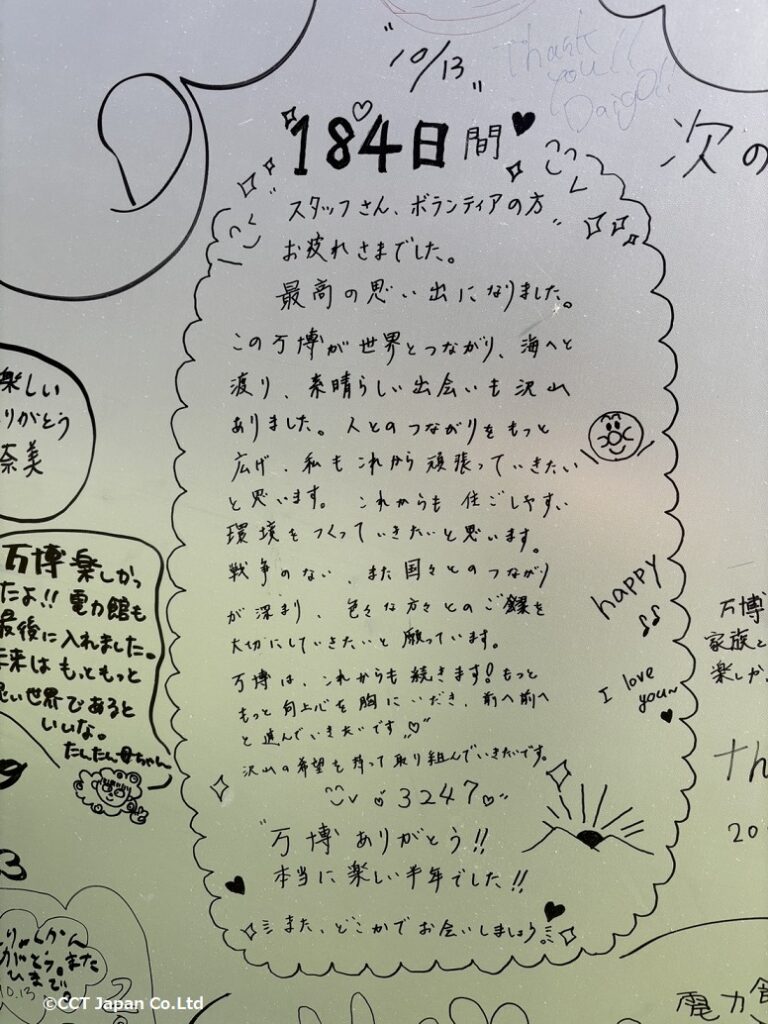 "10/13"
Thank
you!!
Daigo!!
184日間
次の
スタッフさん、ボランティアの方
お疲れさまでした。
最高の思い出になりました。
この万博が世界とつながり、海へと
渡り、素晴らしい出会いも沢山
ありました。人とのつながりをもっと
広げ、私もこれから頑張っていきたい
と思います。これからも住ごしやすい
環境をつくっていきたいと思います。
戦争のない、また国々とのつながり
が深まり、色々な方々とのご縁を
大切にしていきたいと願っています。
万博は、これからも続きます!もっと
もっと向上心を胸にいだき、前へ前へ
と進んでいきたいです
沢山の希望を持って取り組んでいきたいです。
3247
"万博ありがとう!!
本当に楽しい半年でした!!
また、どこかでお会いしましょう
happy
I love
you~
楽しい
りがとう
奈美
万博楽しかっ
たよ!!電力館も
最後に入れました。
未来はもっともっと
良い世界であると
いいな。
たんたん母ちゃん
万博
家族と
楽しか
th
20
3
がとう。また
10.13
電力館
©CCT Japan Co.Ltd